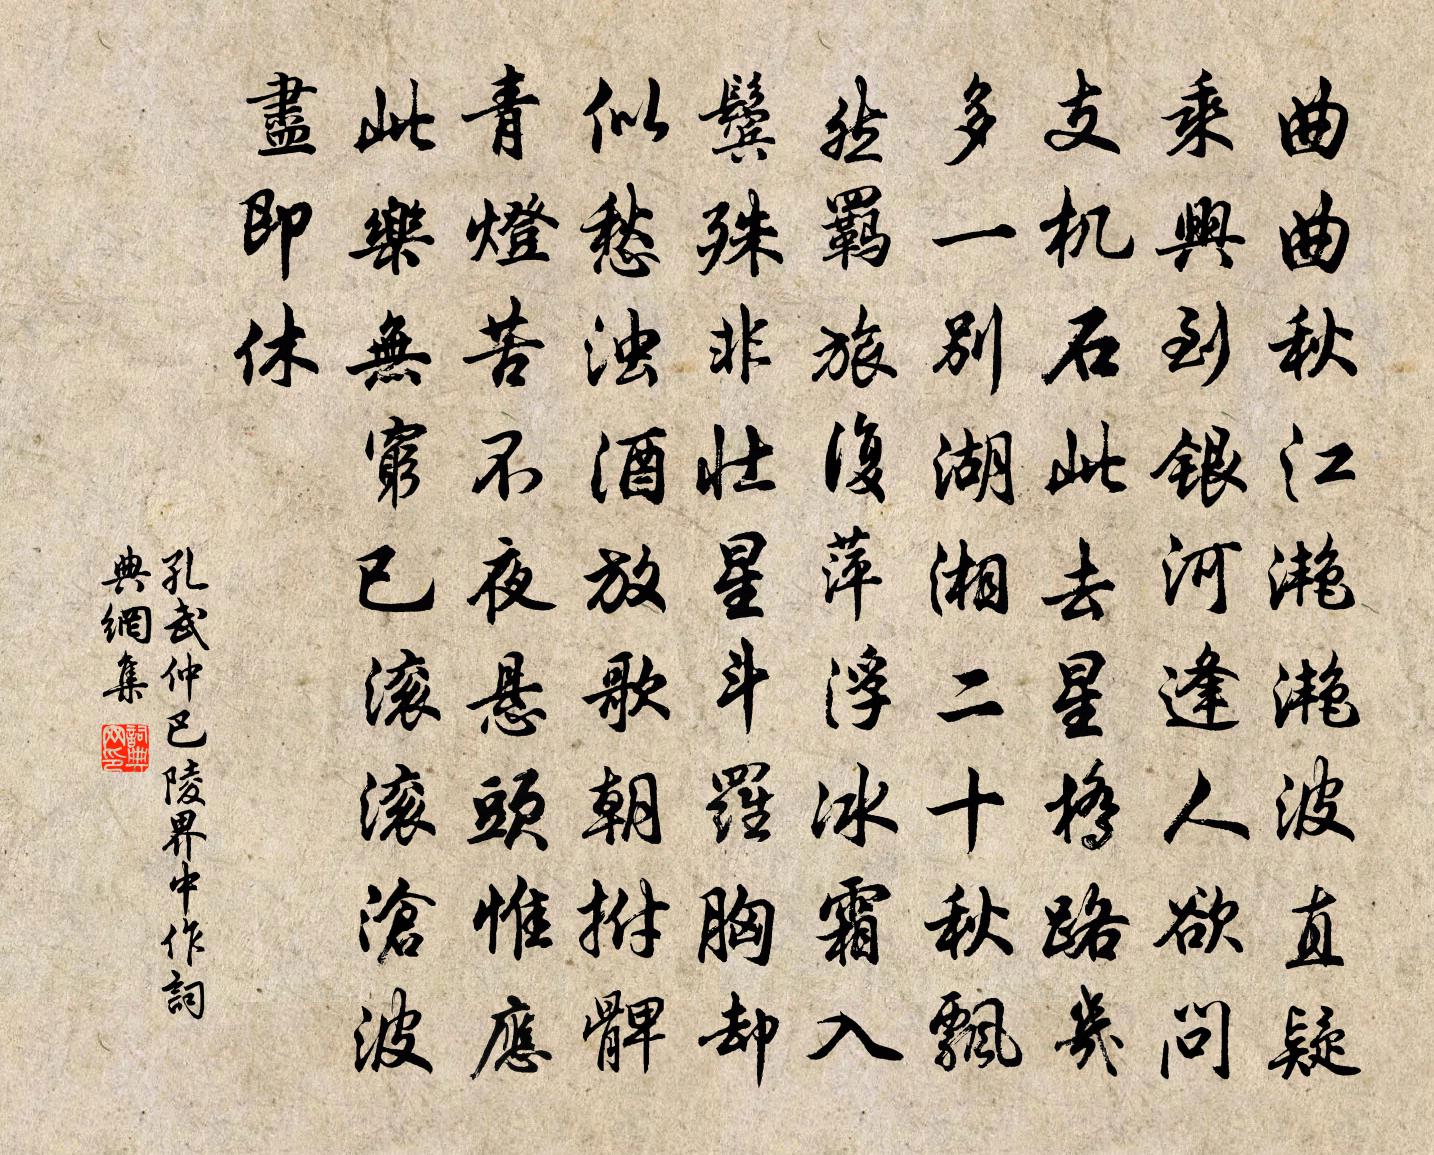 曲曲秋江灩灩波直疑
乘興到銀河逢人欲問
支机石此去星橋路幾
多一別湖湘二十秋飄
然羈旅復萍浮冰霜入
鬓殊非壮星斗羅胸却
似愁浊酒放歌朝拊髀
青燈苦不夜悬頭惟應
此樂無窮已滚滚滄波
盡即休
孔武仲巴陵界中作詞
典網集
詞典網印